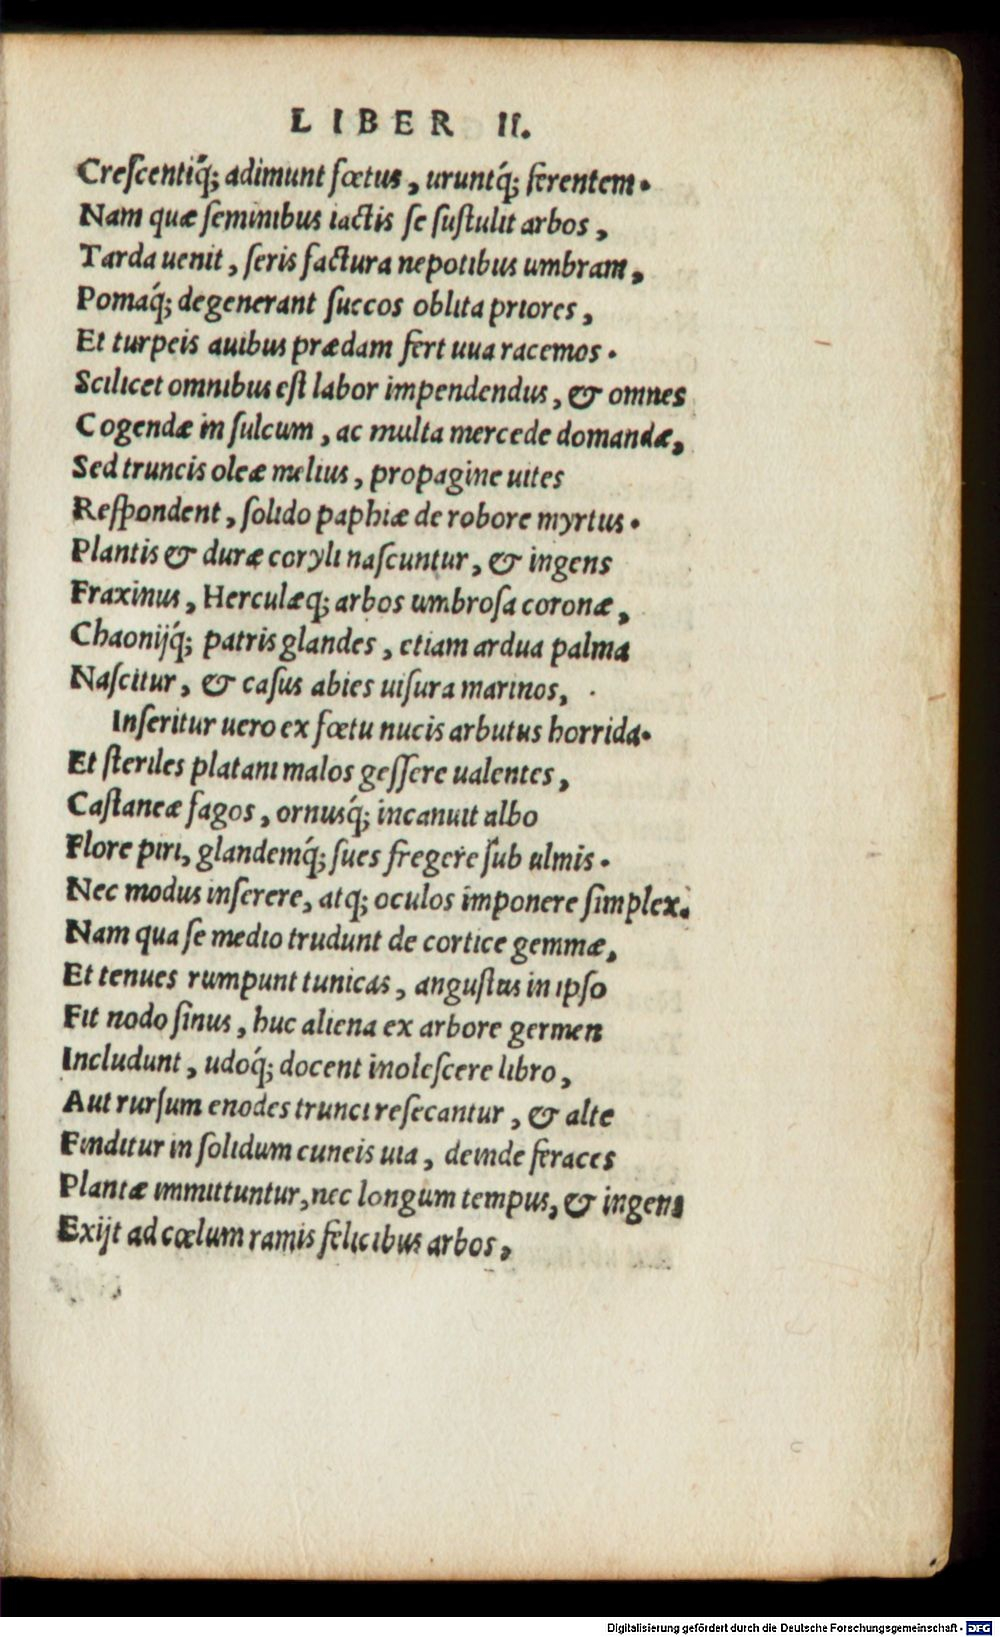 LIBER II.
Creſcentiq́; adimunt fœtus, uruntq́; ferentem.
Nam quæ ſeminibus iactis ſe ſuſtulit arbos,
Tarda uenit, ſeris factura nepotibus umbram,
Pomaq́; degenerant ſuccos oblita priores,
Et turpeis auibus prædam fert uua racemos.
Scilicet omnibus eſt labor impendendus, & omnes
Cogendæ in ſulcum, ac multa mercede domandæ,
Sed truncis oleæ melius, propagine uites
Reſpondent, ſolido paphiæ de robore myrtus.
Plantis & duræ coryli naſcuntur, & ingens
Fraxinus, Herculæq; arbos umbroſa coronæ,
Chaonijq́; patris glandes, etiam ardua palma
Naſcitur, & caſus abies uiſura marinos,
Inſeritur uero ex fœtu nucis arbutus horrida.
Et ſteriles platani malos geſſere ualentes,
Caſtaneæ fagos, ornusq́; incanuit albo
Flore piri, glandemq́; ſues fregere ſub ulmis.
Nec modus inſerere, atq; oculos imponere ſimplex.
Nam qua ſe medio trudunt de cortice gemmæ,
Et tenues rumpunt tunicas, anguſtus in ipſo
Fit nodo ſinus, huc aliena ex arbore germen
Includunt, udoq́; docent inoleſcere libro,
Aut rurſum enodes trunci reſecantur, & alte
Finditur in ſolidum cuneis uia, deinde feraces
Plantæ immittuntur, nec longum tempus, & ingens
Exijt ad cœlum ramis felicibus arbos,
Digitalisierung gefördert durch die Deutsche Forschungsgemeinschaft - DFG